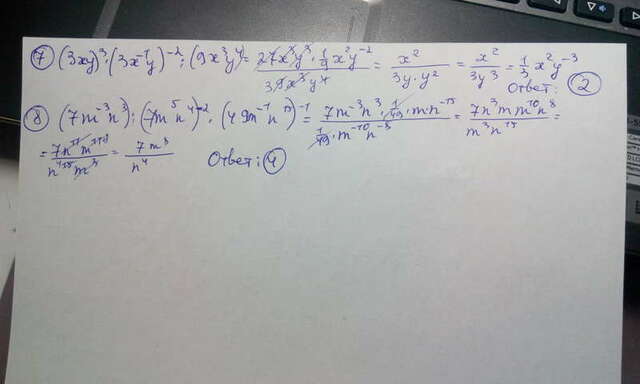 ⑦ (3xy)³ : (3x⁻¹y)⁻² : (9x³y⁴) = 27x³y³ · 1/9 x²y⁻² / 9x³y⁴ = x² / 3y·y² = x² / 3y³ = 1/3 x²y⁻³
Ответ: ②
⑧ (7m⁻³n³) : (7m⁵n⁴)⁻² · (49m⁻¹n)⁻¹ = 7m⁻³n³ · 1/49 · m·n⁻¹⁵ / 1/49 · m⁻¹⁰n⁻⁸ = 7n³m m¹⁰n⁸ / m³n¹⁵ =
= 7n¹¹m¹¹ / n¹⁵m³ = 7m⁸ / n⁴ Ответ: ④